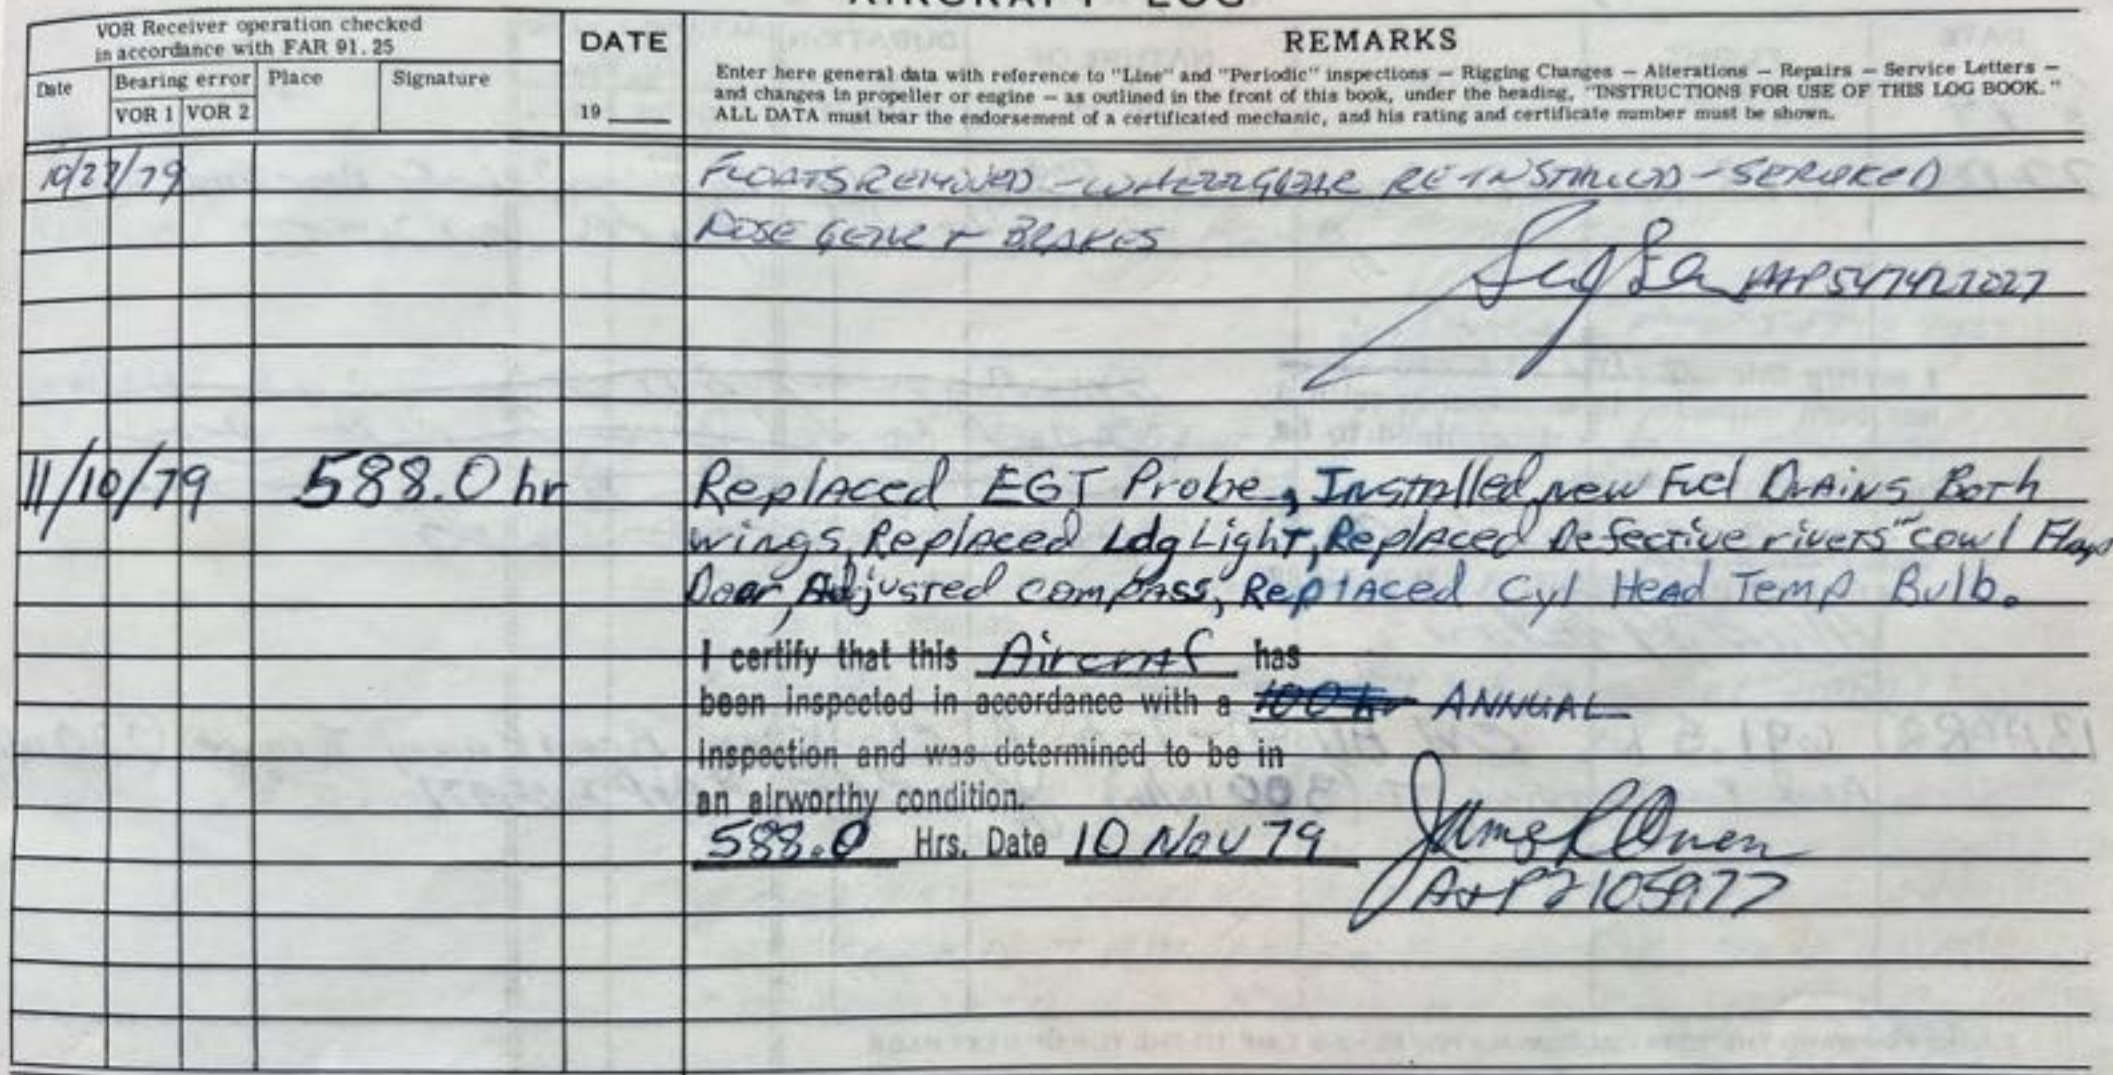 AIRCRAFT LOG
VOR Receiver operation checked
in accordance with FAR 91.25
Date
Bearing error
VOR 1 VOR 2
Place
Signature
DATE
19
REMARKS
Enter here general data with reference to "Line" and "Periodic" inspections — Rigging Changes — Alterations — Repairs — Service Letters —
and changes in propeller or engine — as outlined in the front of this book, under the heading, "INSTRUCTIONS FOR USE OF THIS LOG BOOK."
ALL DATA must bear the endorsement of a certificated mechanic, and his rating and certificate number must be shown.
10/27/79 FLOATS REMOVED - WHEEL GEAR RE-INSTALLED - SERVICED
NOSE GEAR + BRAKES
11/10/79 588.0 hr Replaced EGT Probe, Installed new Fuel Drains Both
wings, Replaced Ldg Light, Replaced Defective rivets "cowl Flap
Door, Adjusted compass, Replaced Cyl Head Temp Bulb.
I certify that this Aircraf has
been inspected in accordance with a 100 hr ANNUAL
inspection and was determined to be in
an airworthy condition.
588.0 Hrs. Date 10 Nov 79 James R Owen
A+P 2105977